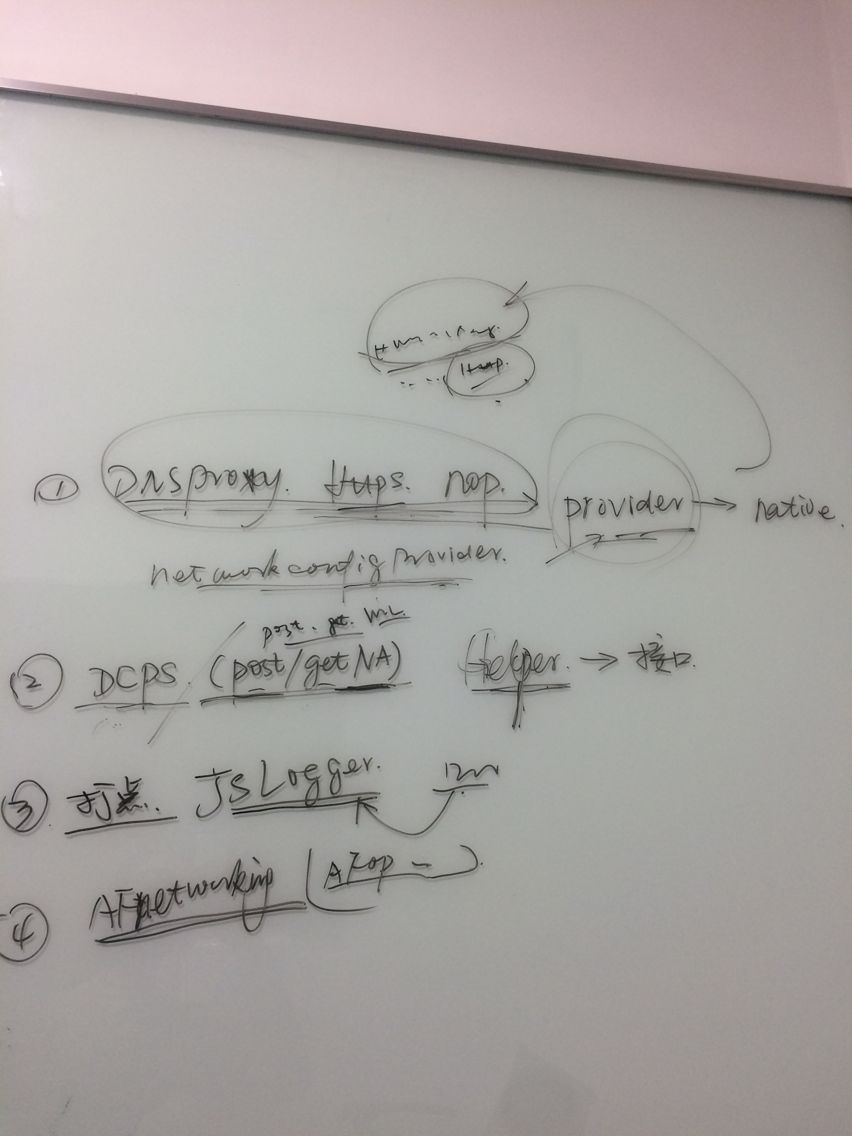 Http.
① DNSproxy. Https. nop. provider → native.
networkconfigprovider.
post. get.
② DCPS. (post/get NA) Helper. → 接口
③ 打点. JSLogger.
④ AFnetworking (AFop —).